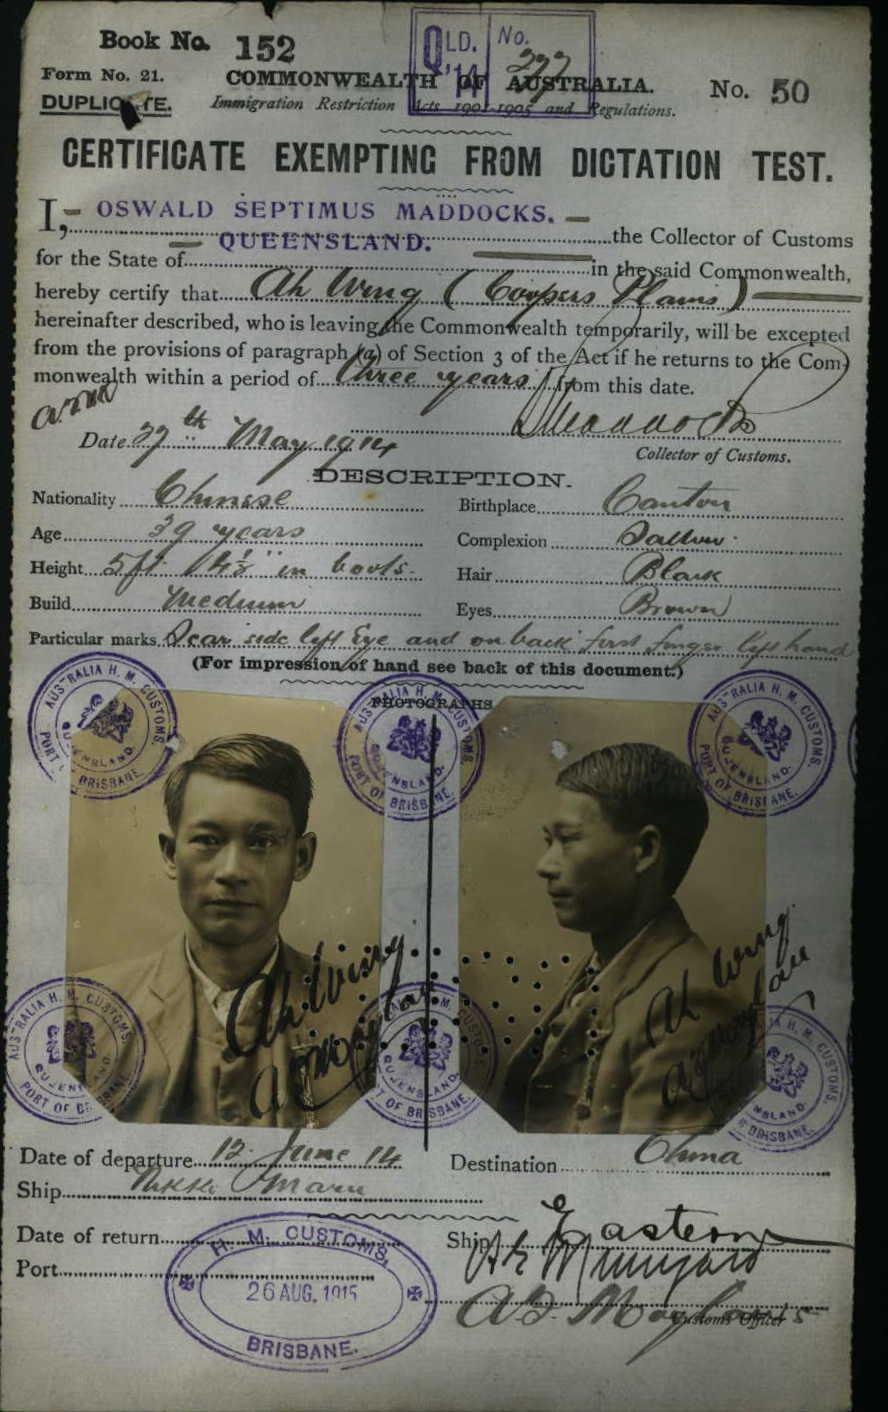 Book No. 152
QLD. No.
'14 277
Form No. 21.
COMMONWEALTH OF AUSTRALIA.
No. 50
DUPLICATE.
Immigration Restriction Acts 1901-1905 and Regulations.
CERTIFICATE EXEMPTING FROM DICTATION TEST.
I, OSWALD SEPTIMUS MADDOCKS. the Collector of Customs
for the State of QUEENSLAND. in the said Commonwealth,
hereby certify that Ah Wing (Coopers Plains)
hereinafter described, who is leaving the Commonwealth temporarily, will be excepted
from the provisions of paragraph (a) of Section 3 of the Act if he returns to the Com-
monwealth within a period of three years from this date.
Date 27th May 1914
Maddocks
Collector of Customs.
DESCRIPTION.
Nationality Chinese
Birthplace Canton
Age 39 years
Complexion Sallow.
Height 5ft in boots.
Hair Black
Build Medium
Eyes Brown
Particular marks Scar side left Eye and on back first finger left hand
(For impression of hand see back of this document.)
PHOTOGRAPHS
AUSTRALIA H. M. CUSTOMS. QUEENSLAND. PORT OF BRISBANE.
AUSTRALIA H. M. CUSTOMS. QUEENSLAND. PORT OF BRISBANE.
AUSTRALIA H. M. CUSTOMS. QUEENSLAND. PORT OF BRISBANE.
Ah Wing
Ah Wing
AUSTRALIA H. M. CUSTOMS. QUEENSLAND. PORT OF BRISBANE.
AUSTRALIA H. M. CUSTOMS. QUEENSLAND. PORT OF BRISBANE.
AUSTRALIA H. M. CUSTOMS. QUEENSLAND. PORT OF BRISBANE.
Date of departure 12 June 14
Destination China
Ship Nikko Maru
Date of return
Ship Eastern
Port
H. M. CUSTOMS,
26 AUG. 1915
BRISBANE.
Customs Officer